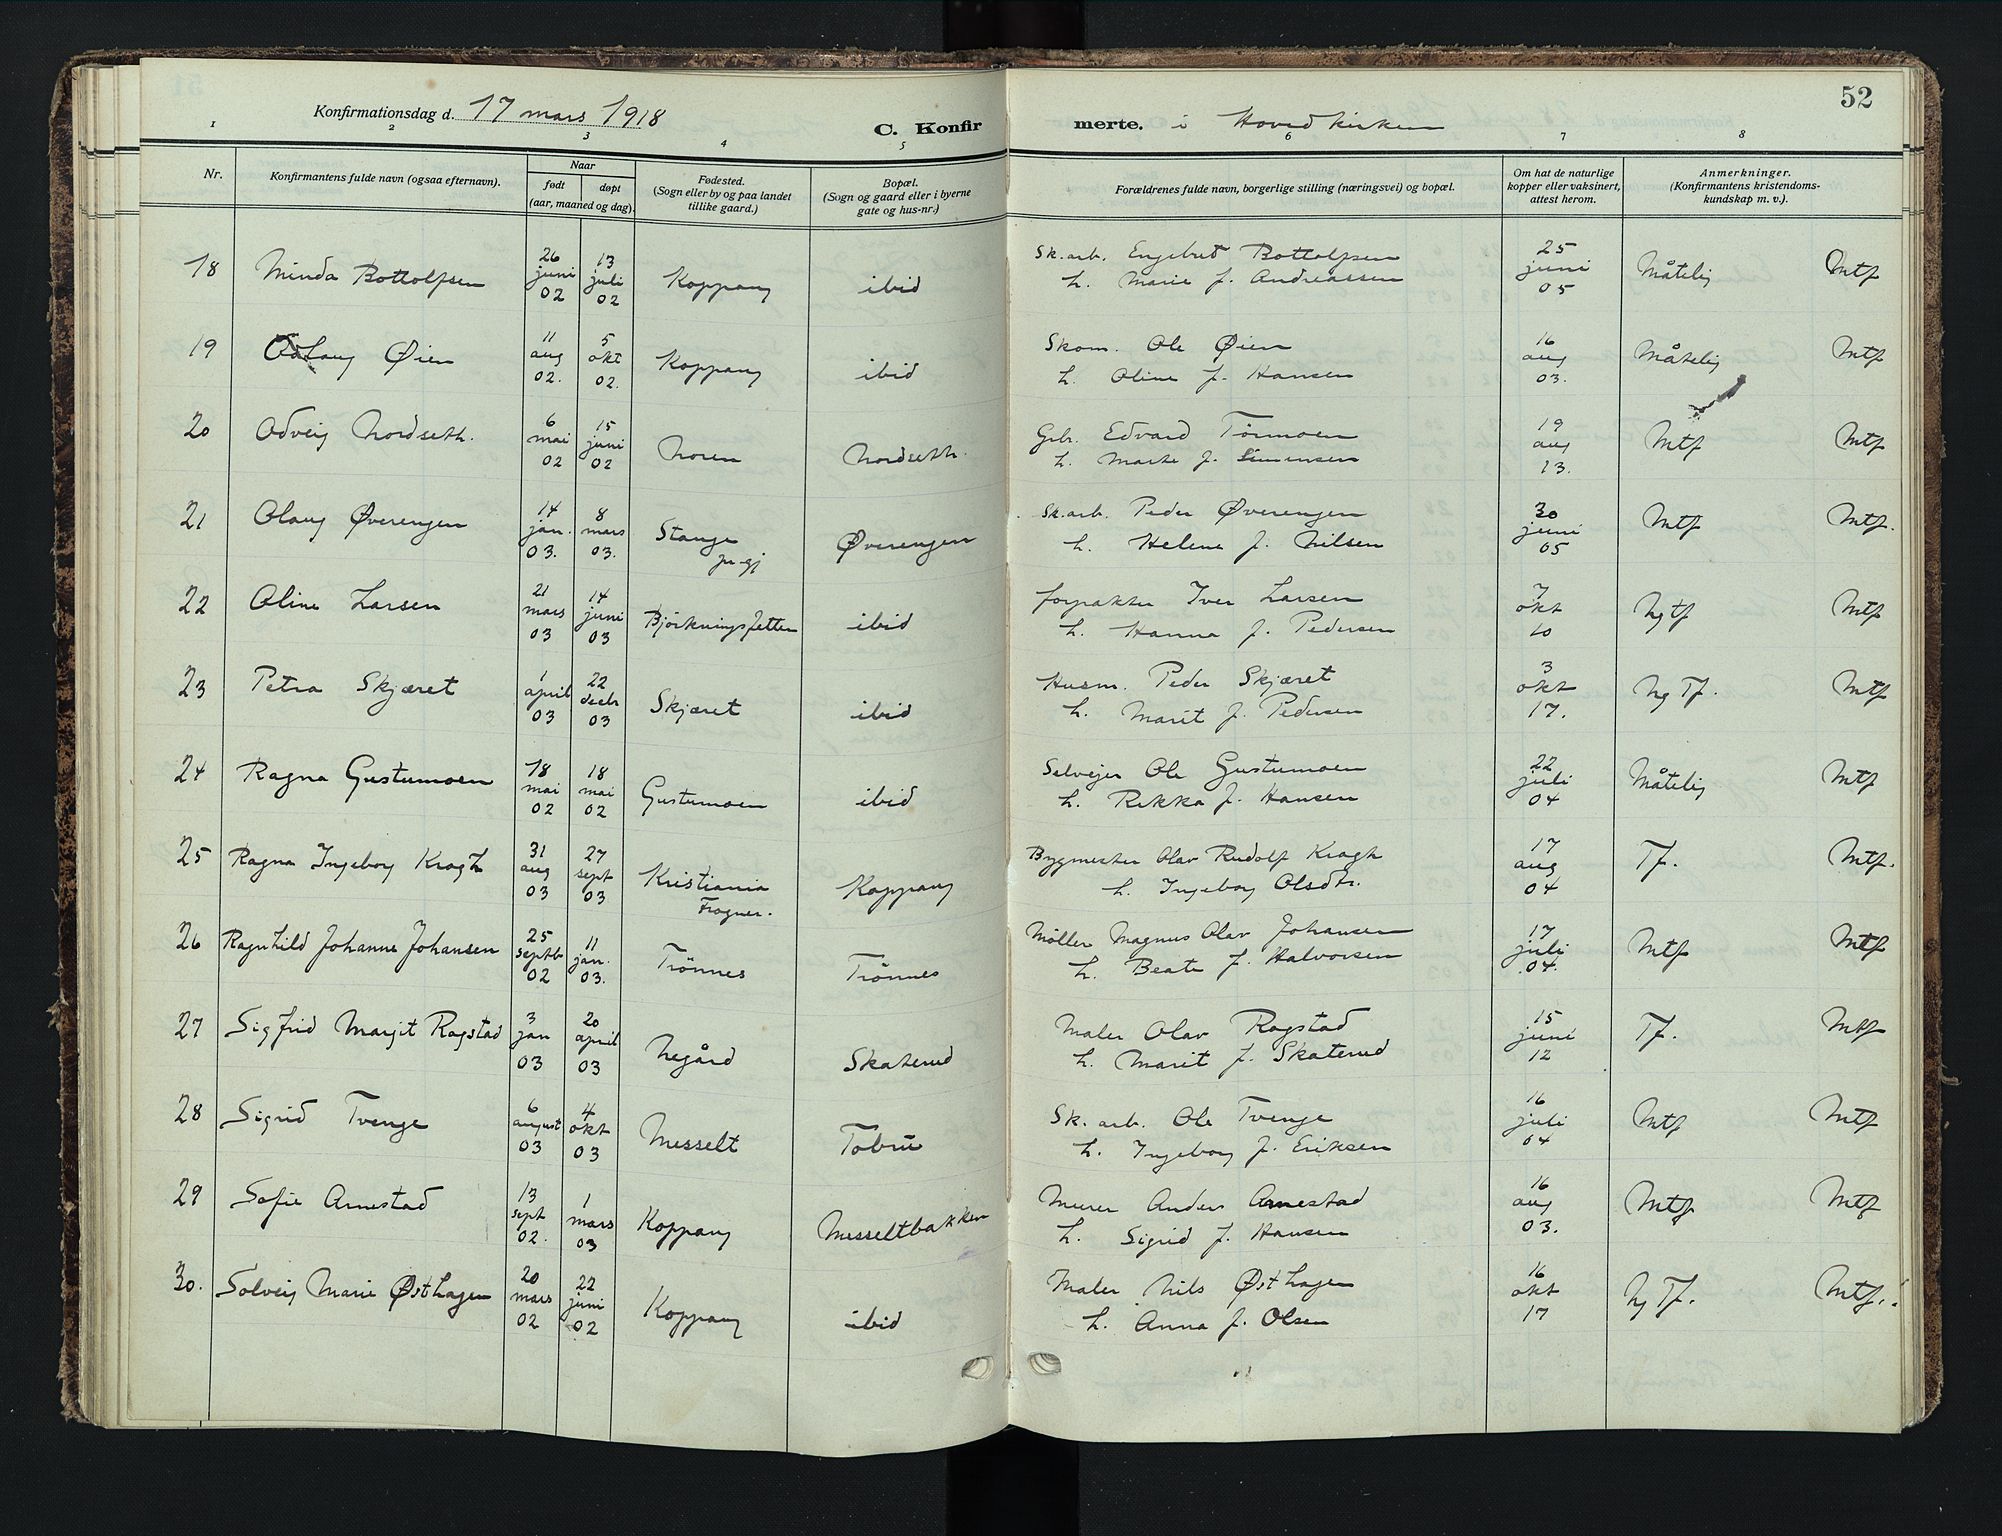 52
Konfirmationsdag d. 17 mars 1918
C. Konfirmerte. i Hovedkirken
1 2 3 4 5 6 7 8
Nr. Konfirmantens fulde navn (ogsaa efternavn). Naar født døpt (aar, maaned og dag). Fødested. (Sogn eller by og paa landet tillike gaard.) Bopæl. (Sogn og gaard eller i byerne gate og hus-nr.) Forældrenes fulde navn, borgerlige stilling (næringsvei) og bopæl. Om hat de naturlige kopper eller vaksinert, attest herom. Anmerkninger. (Konfirmantens kristendomskundskap m. v.).
18 Minda Bottolfsen 26 juni 02 13 juli 02 Koppang ibid Sk.arb. Engebret Bottolfsen 25 juni 05 Måtelig Mtf
h. Marie f. Andreassen
19 Oddlaug Øien 11 aug 02. 5 okt 02. Koppang ibid Skom. Ole Øien 16 aug 03. Måtelig Mtf
h. Oline f. Hansen
20 Odveig Nordseth. 6 mai 02 15 juni 02 Noren Nordseth. Gbr. Edvard Tørmoen 19 aug 13. Mtf Mtf
h. Marte f. Simensen
21 Olaug Øverengen 14 jan. 03. 8 mars 03. Stange Øverengen Sk.arb. Peder Øverengen 30 juni 05 Mtf Mtf.
h. Helene f. Nilsen
22 Oline Larsen 21 mars 03 14 juni 03 Bjørkningsfetten ibid forpakter Iver Larsen 7 okt 10 Ng tf Mtf
h. Hanna f. Pedersen
23 Petra Skjæret 1 april 03 22 decbr 03 Skjæret ibid Husm. Peder Skjæret 3 okt 17. Ng Tf. Mtf
h. Marit f. Pedersen
24 Ragna Gustumoen 18 mai 02 18 mai 02 Gustumoen ibid Selveier Ole Gustumoen 22 juli 04 Måtelig Mtf
h. Rikka f. Hansen
25 Ragna Ingeborg Kragh 31 aug 03 27 sept 03 Kristiania Frogner. Koppang Bygmester Olav Rudolf Kragh 17 aug 04 Tf. Mtf.
h. Ingeborg Olsdtr.
26 Ragnhild Johanne Johansen 25 septb 02 11 jan. 03. Trönnes Trönnes Möller Magnus Olav Johansen 17 juli 04. Mtf Mtf
h. Beate f. Halvorsen
27 Sigfrid Margit Rogstad 3 jan 03 20 april 03 Negård Skaterud Maler Olav Rogstad 15 juni 12 Tf. Mtf
h. Marit f. Skaterud
28 Sigrid Tvenge 6 august 03 4 okt 03 Messelt Tobru Sk. arb. Ole Tvenge 16 juli 04 Mtf Mtf
h. Ingeborg f. Eriksen
29 Sofie Arnestad 13 sept 02. 1 mars 03 Koppang Messeltbakken Murer Anders Arnestad 16 aug 03. Mtf Mtf
h. Sigrid f. Hansen
30. Solveig Marie Østhagen 20 mars 02 22 juni 02 Koppang ibid Maler Nils Østhagen 16 okt 17 Ng Tf. Mtf.
h. Anna f. Olsen